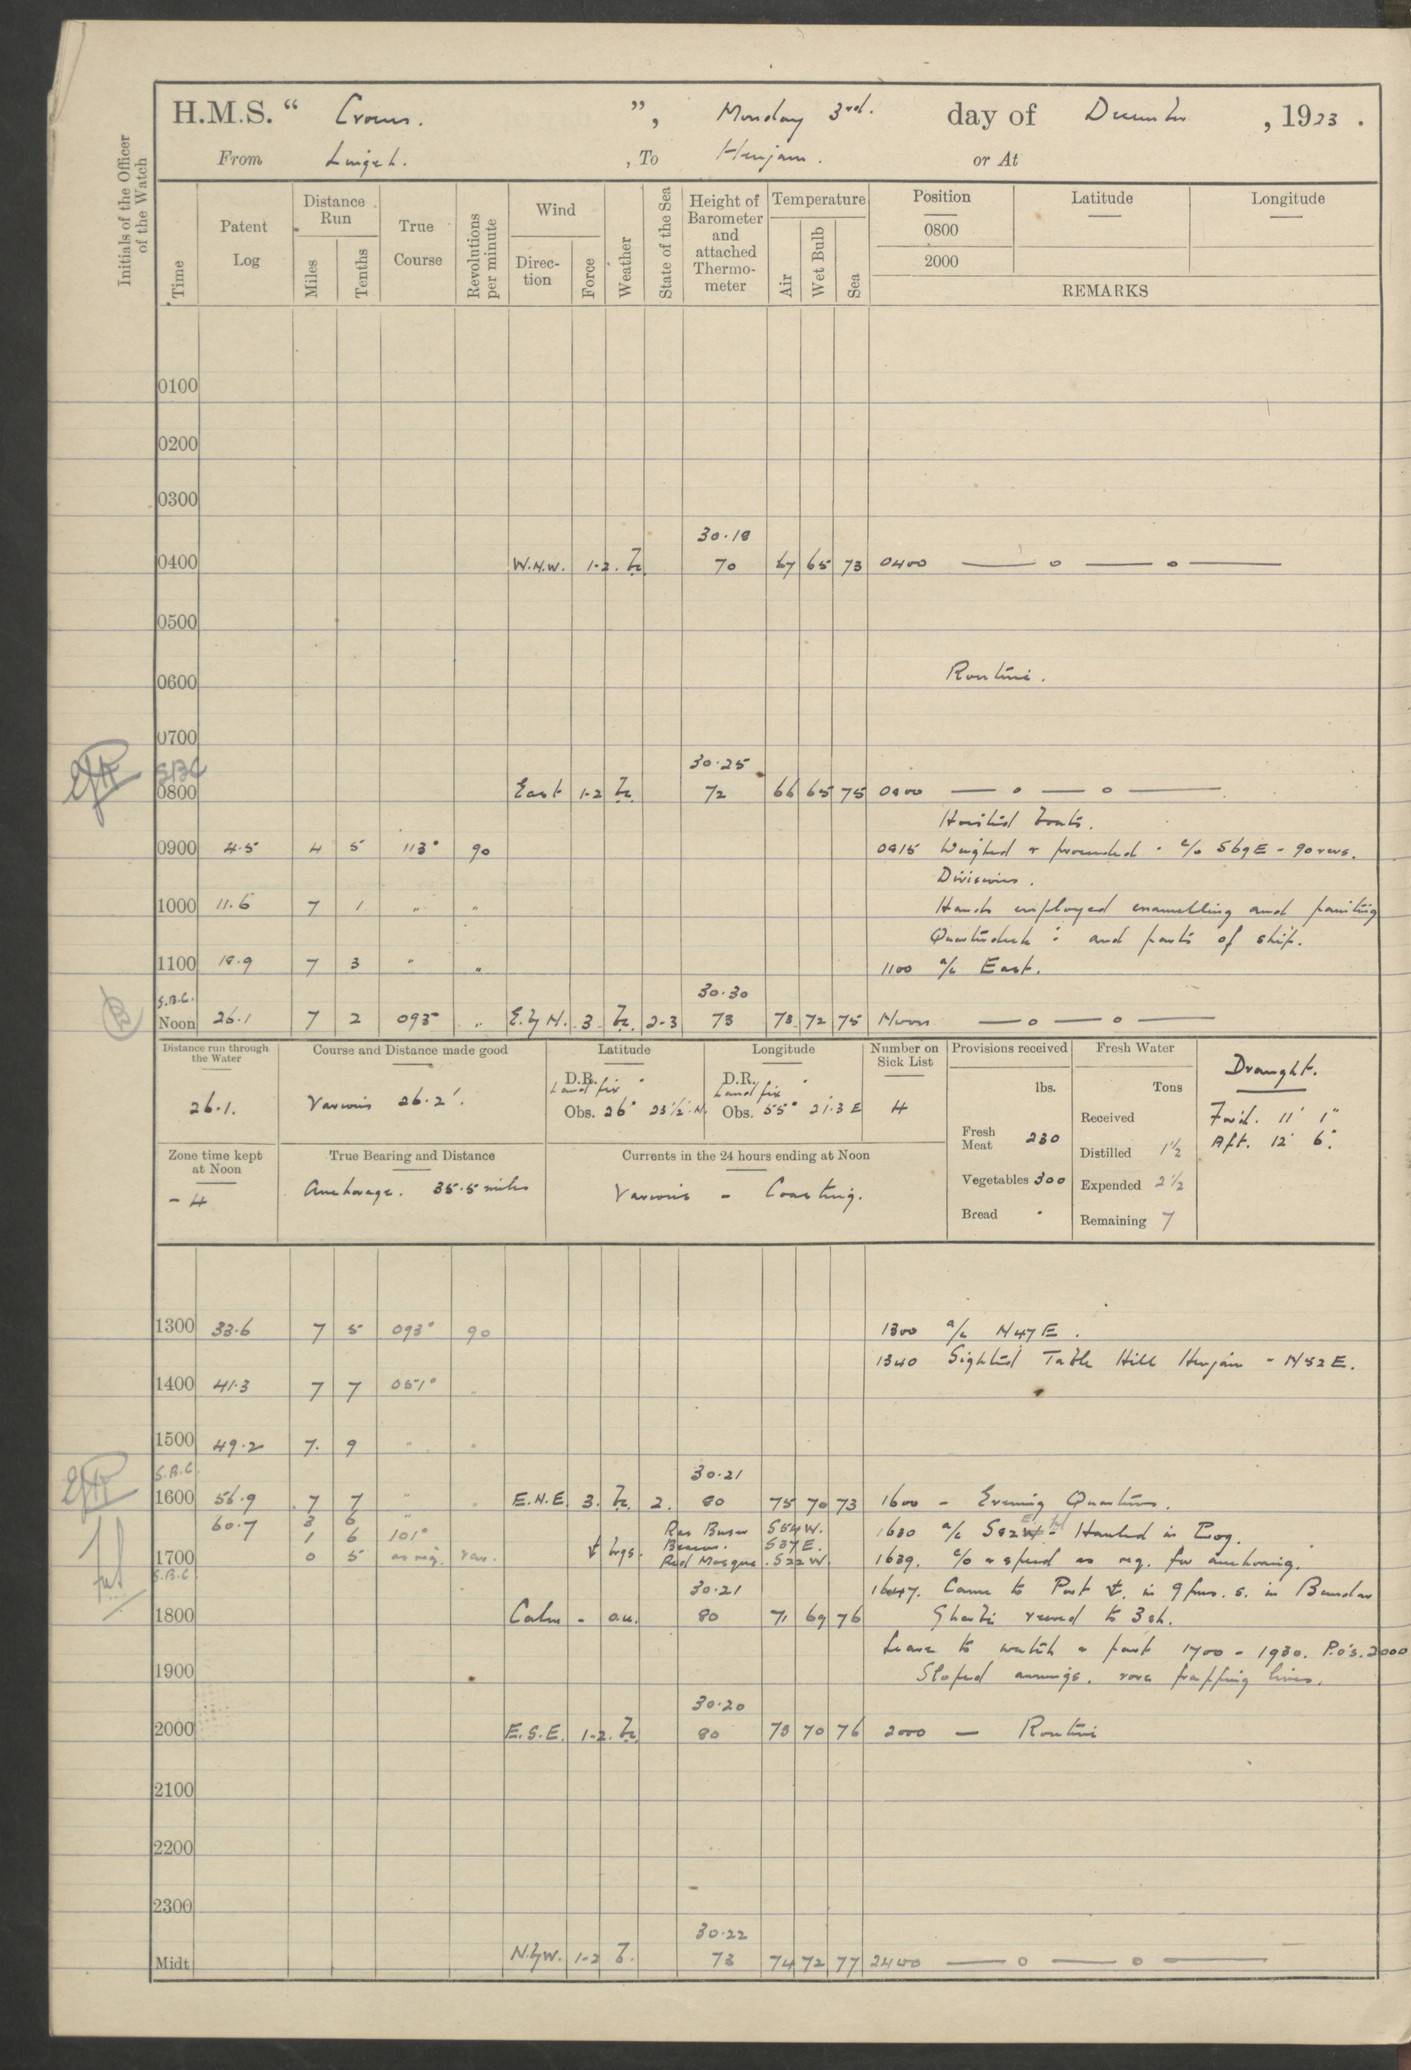 H.M.S. “ Crocus. ”, Monday 3rd. day of December , 1923 .
From Lingeh. , To Henjam. or At
Initials of the Officer of the Watch
Time
Patent Log
Distance Run
Miles
Tenths
True Course
Revolutions per minute
Wind
Direction
Force
Weather
State of the Sea
Height of Barometer and attached Thermometer
Temperature
Air
Wet Bulb
Sea
Position
0800
2000
Latitude
Longitude
REMARKS
0100
0200
0300
30.18
0400 W.N.W. 1-2. 70 67 65 73 0400 — o — o —
0500
0600 Routine.
0700
30.25
0800 East 1-2 72 66 65 75 0800 — o — o —
Hoisted boats.
0900 4.5 4 5 113° 90 0815 Weighed & proceeded. c/o S69E - 90 revs.
Divisions.
1000 11.6 7 1 " " Hands employed enamelling and painting
Quarterdeck: and parts of ship.
1100 18.9 7 3 " " 1100 a/c East.
S.B.C. 30.30
Noon 26.1 7 2 093° " E. by N. 3. 2-3 73 73 72 75 Noon — o — o —
Distance run through the Water
26.1.
Course and Distance made good
Various 26.2'.
Latitude
D.R. °
Land fix
Obs. 26° 23½' N.
Longitude
D.R. °
Land fix
Obs. 55° 21.3 E
Number on Sick List
4
Provisions received
lbs.
Fresh Meat 230
Vegetables 300
Bread .
Fresh Water
Tons
Received
Distilled 1½
Expended 2½
Remaining 7
Draught.
Fwd. 11' 1"
Aft. 12' 6".
Zone time kept at Noon
- 4
True Bearing and Distance
Anchorage. 35.5 miles
Currents in the 24 hours ending at Noon
Various - Coasting.
1300 33.6 7 5 093° 90 1300 a/c N47E.
1340 Sighted Table Hill Henjam - N52E.
1400 41.3 7 7 051° "
1500 49.2 7. 9 " "
S.B.C. 30.21
1600 56.9 7 7 " " E.N.E. 3. 2. 80 75 70 73 1600 - Evening Quarters.
60.7 3 6 " Ras S54W. 1630 a/c S82 Hauled in Log.
1 6 101° brgs. Beacon. S37E.
1700 0 5 as req. var. Red Mosque. S22W. 1639. c/o & speed as req. for anchoring.
S.B.C. 30.21 1647. Came to Port ⚓. in 9 fms. s. in Bandar
1800 Calm - o.u. 80 71 69 76 veered to 3 sh.
Leave to watch & part 1700 - 1930. P.O's. 2000
1900 Sloped awnings. rove frapping lines.
30.20
2000 E.S.E. 1-2. 80 73 70 76 2000 — Routine
2100
2200
2300
30.22
Midt N. by W. 1-2 b. 73 74 72 77 2400 — o — o —